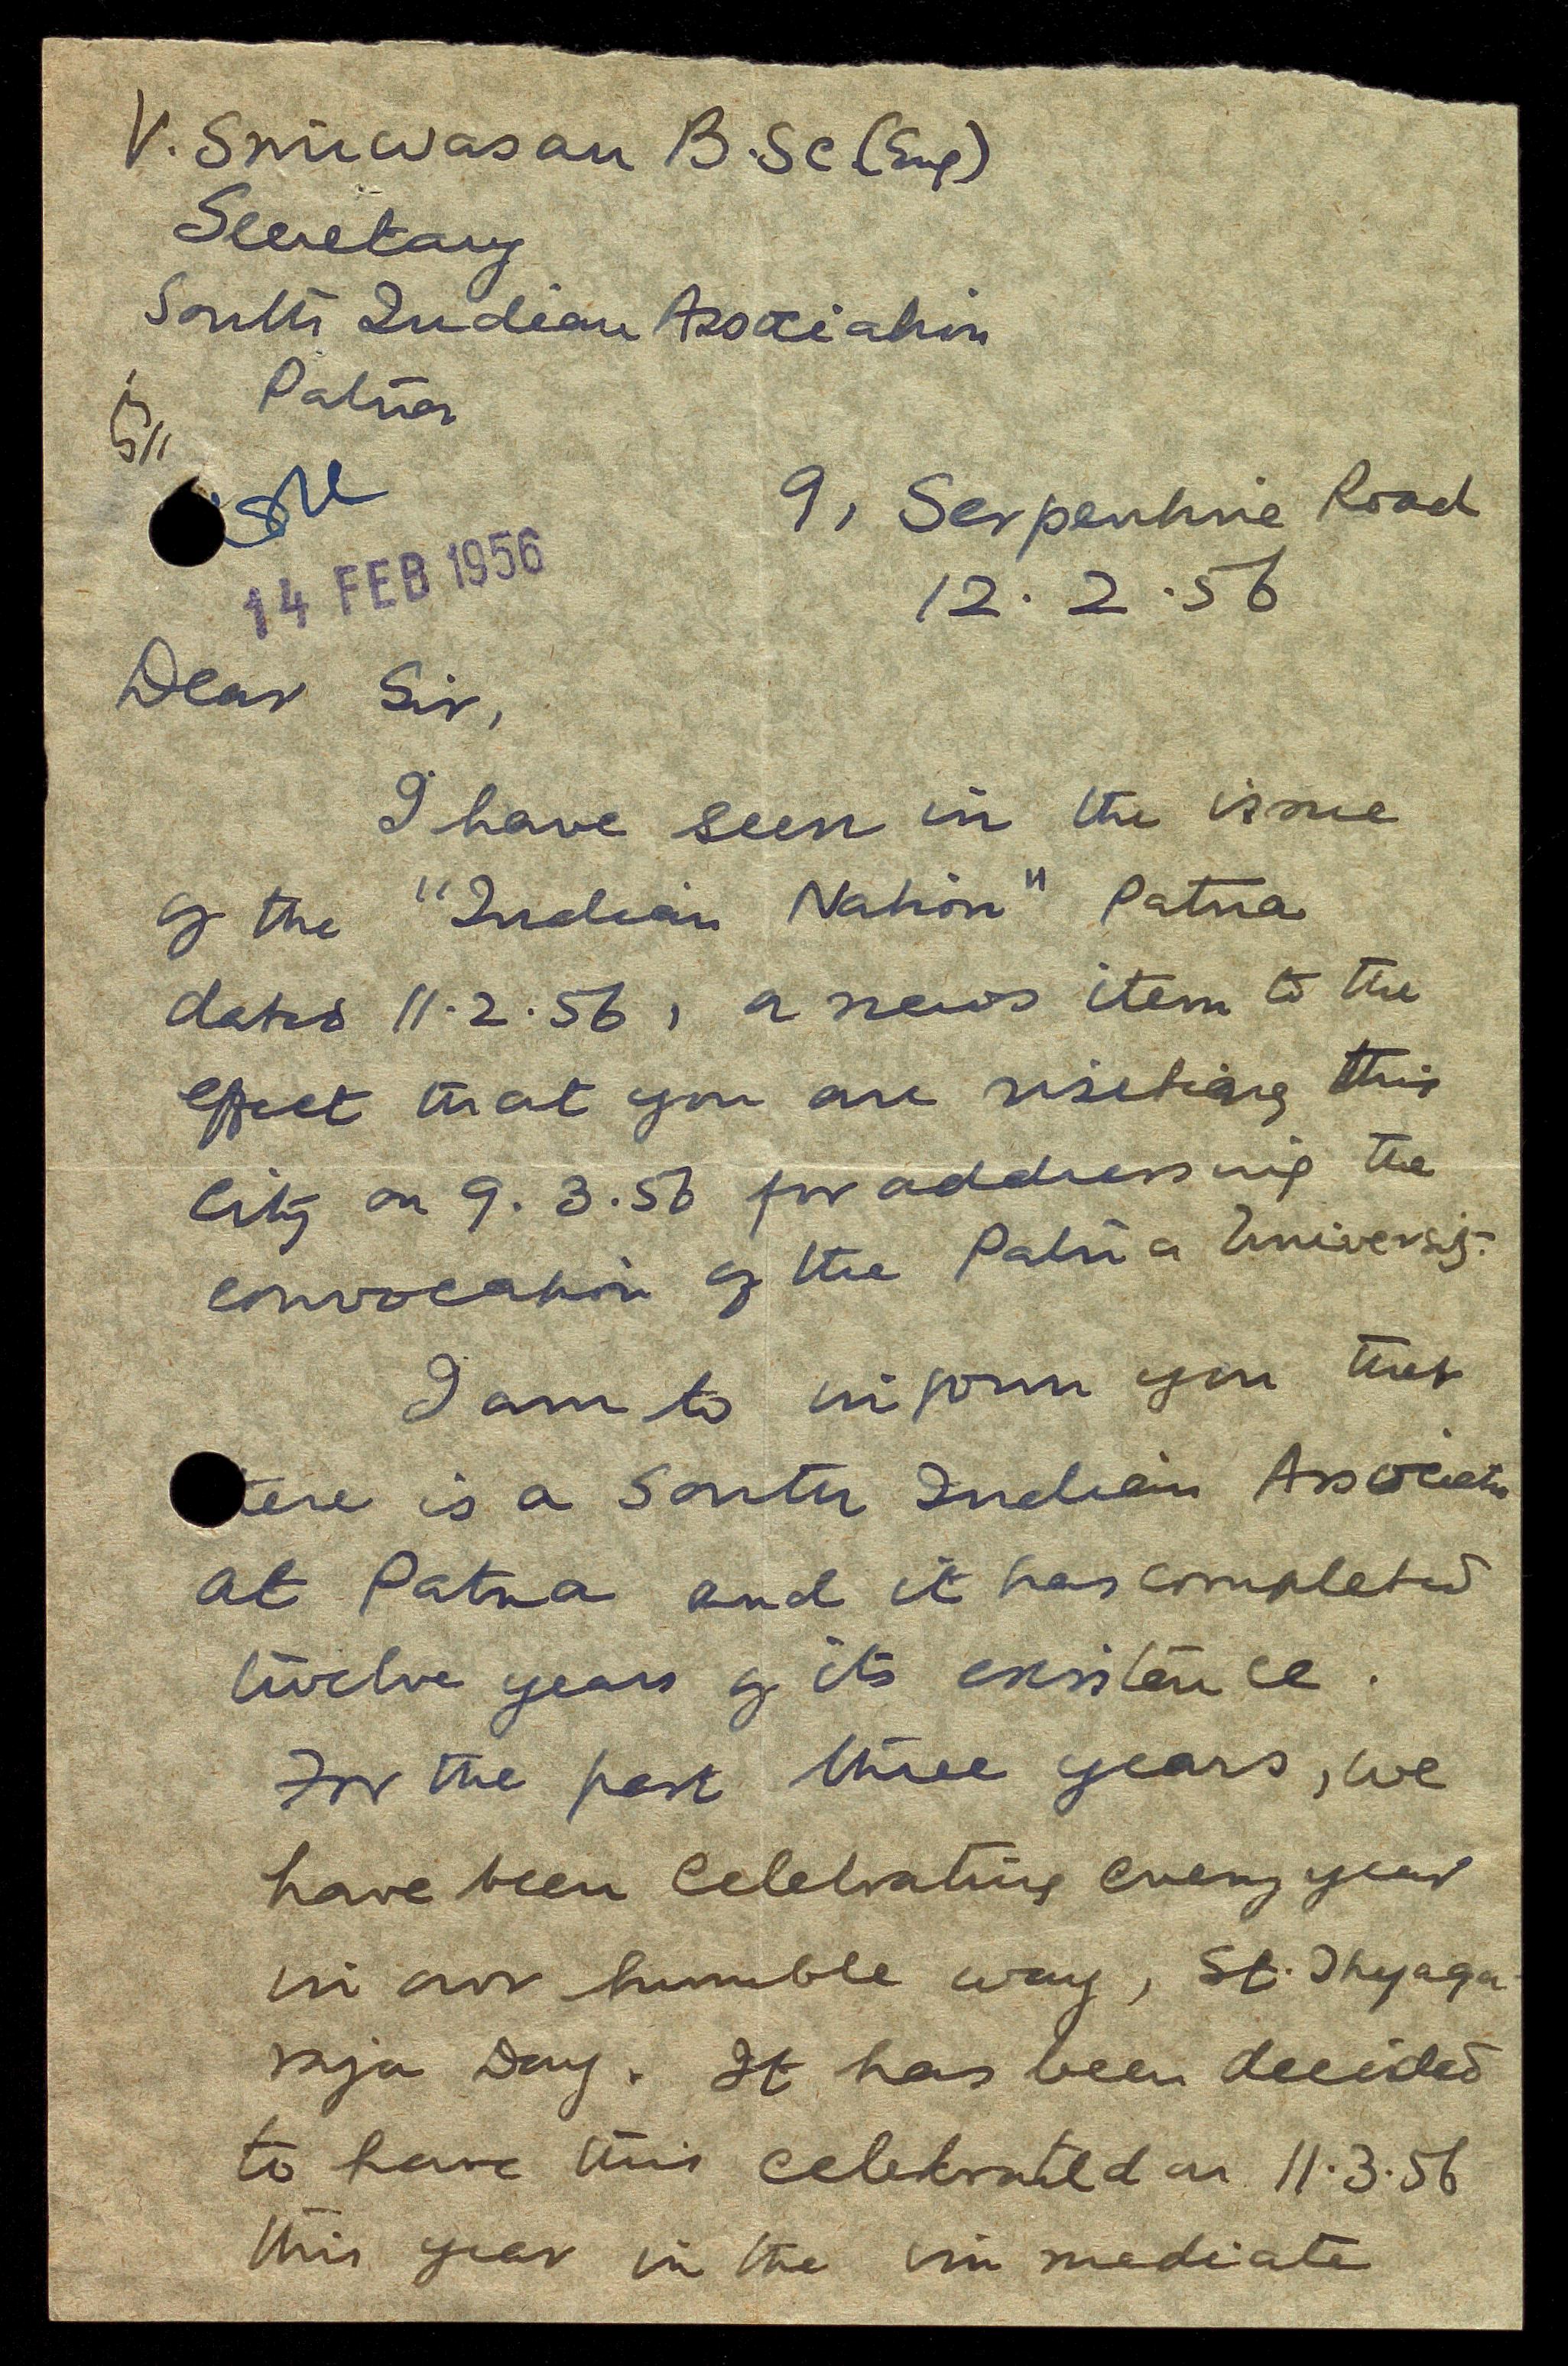 V. Srinivasan B.Sc (Eng)
Secretary
South Indian Association
Patna
9, Serpentine Road
14 FEB 1956
12. 2. 56
Dear Sir,
I have seen in the issue
of the "Indian Nation" Patna
dated 11.2.56, a news item to the
effect that you are visiting this
City on 9.3.56 for addressing the
convocation of the Patna University.
I am to inform you that
there is a South Indian Association
at Patna and it has completed
twelve years of its existence.
For the past three years, we
have been celebrating every year
in our humble way, St. Thyaga-
raja Day. It has been decided
to have this celebrated on 11.3.56
this year in the immediate